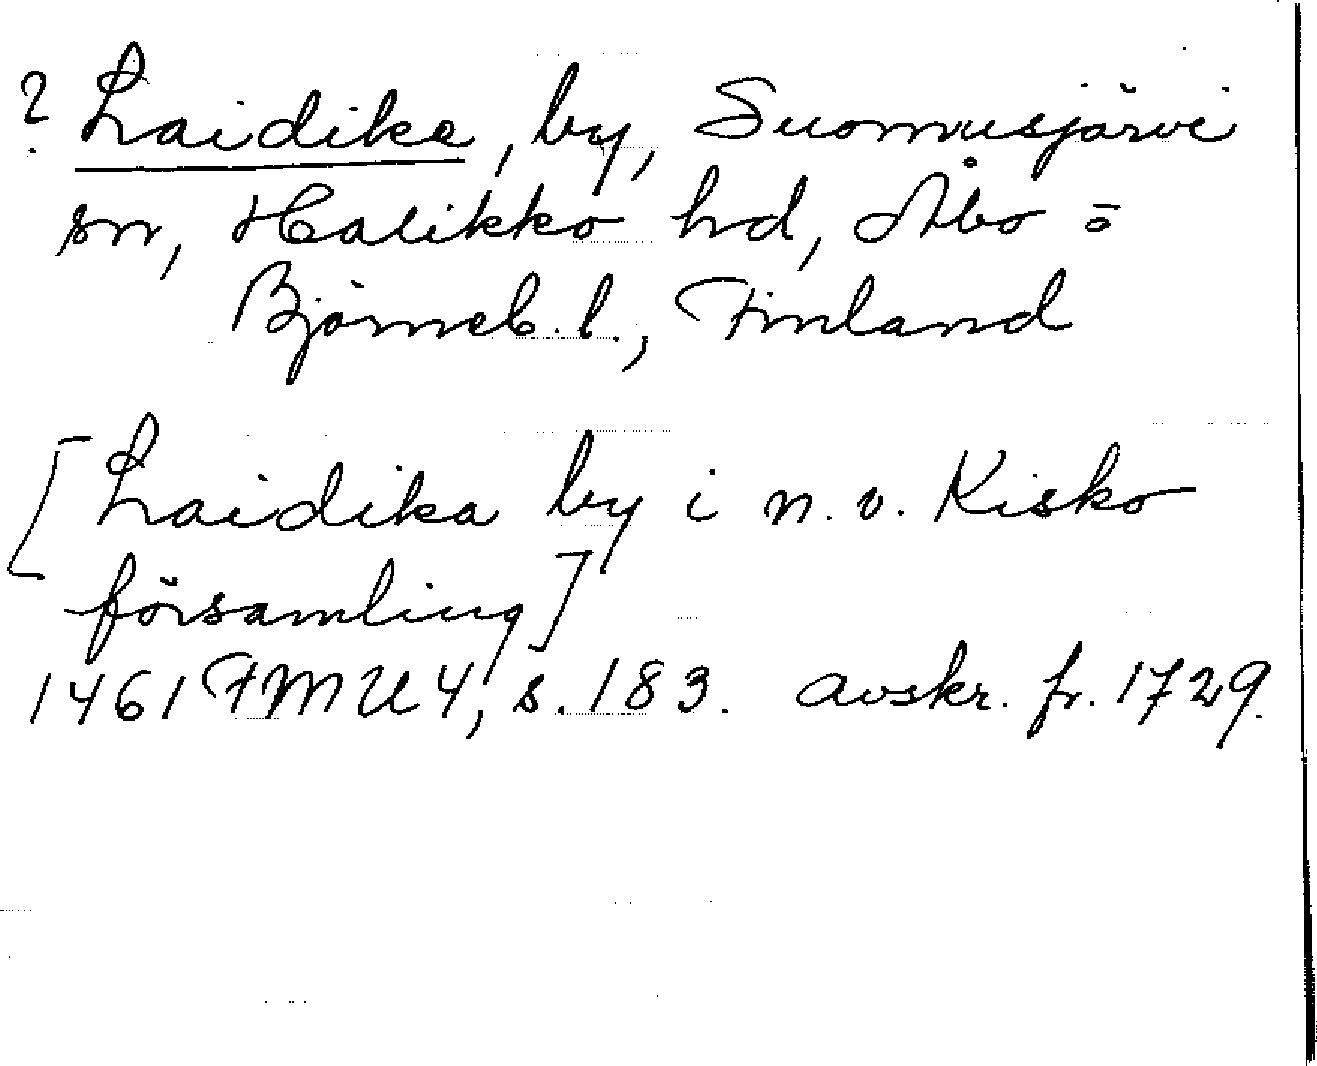 ? Laidike, by, Suomusjärvi
sn, Halikko hd, Åbo o
Björneb. l., Finland
[Laidika by i n. v. Kisko
församling]
1461 FMU 4, s. 183. avskr. fr. 1729.